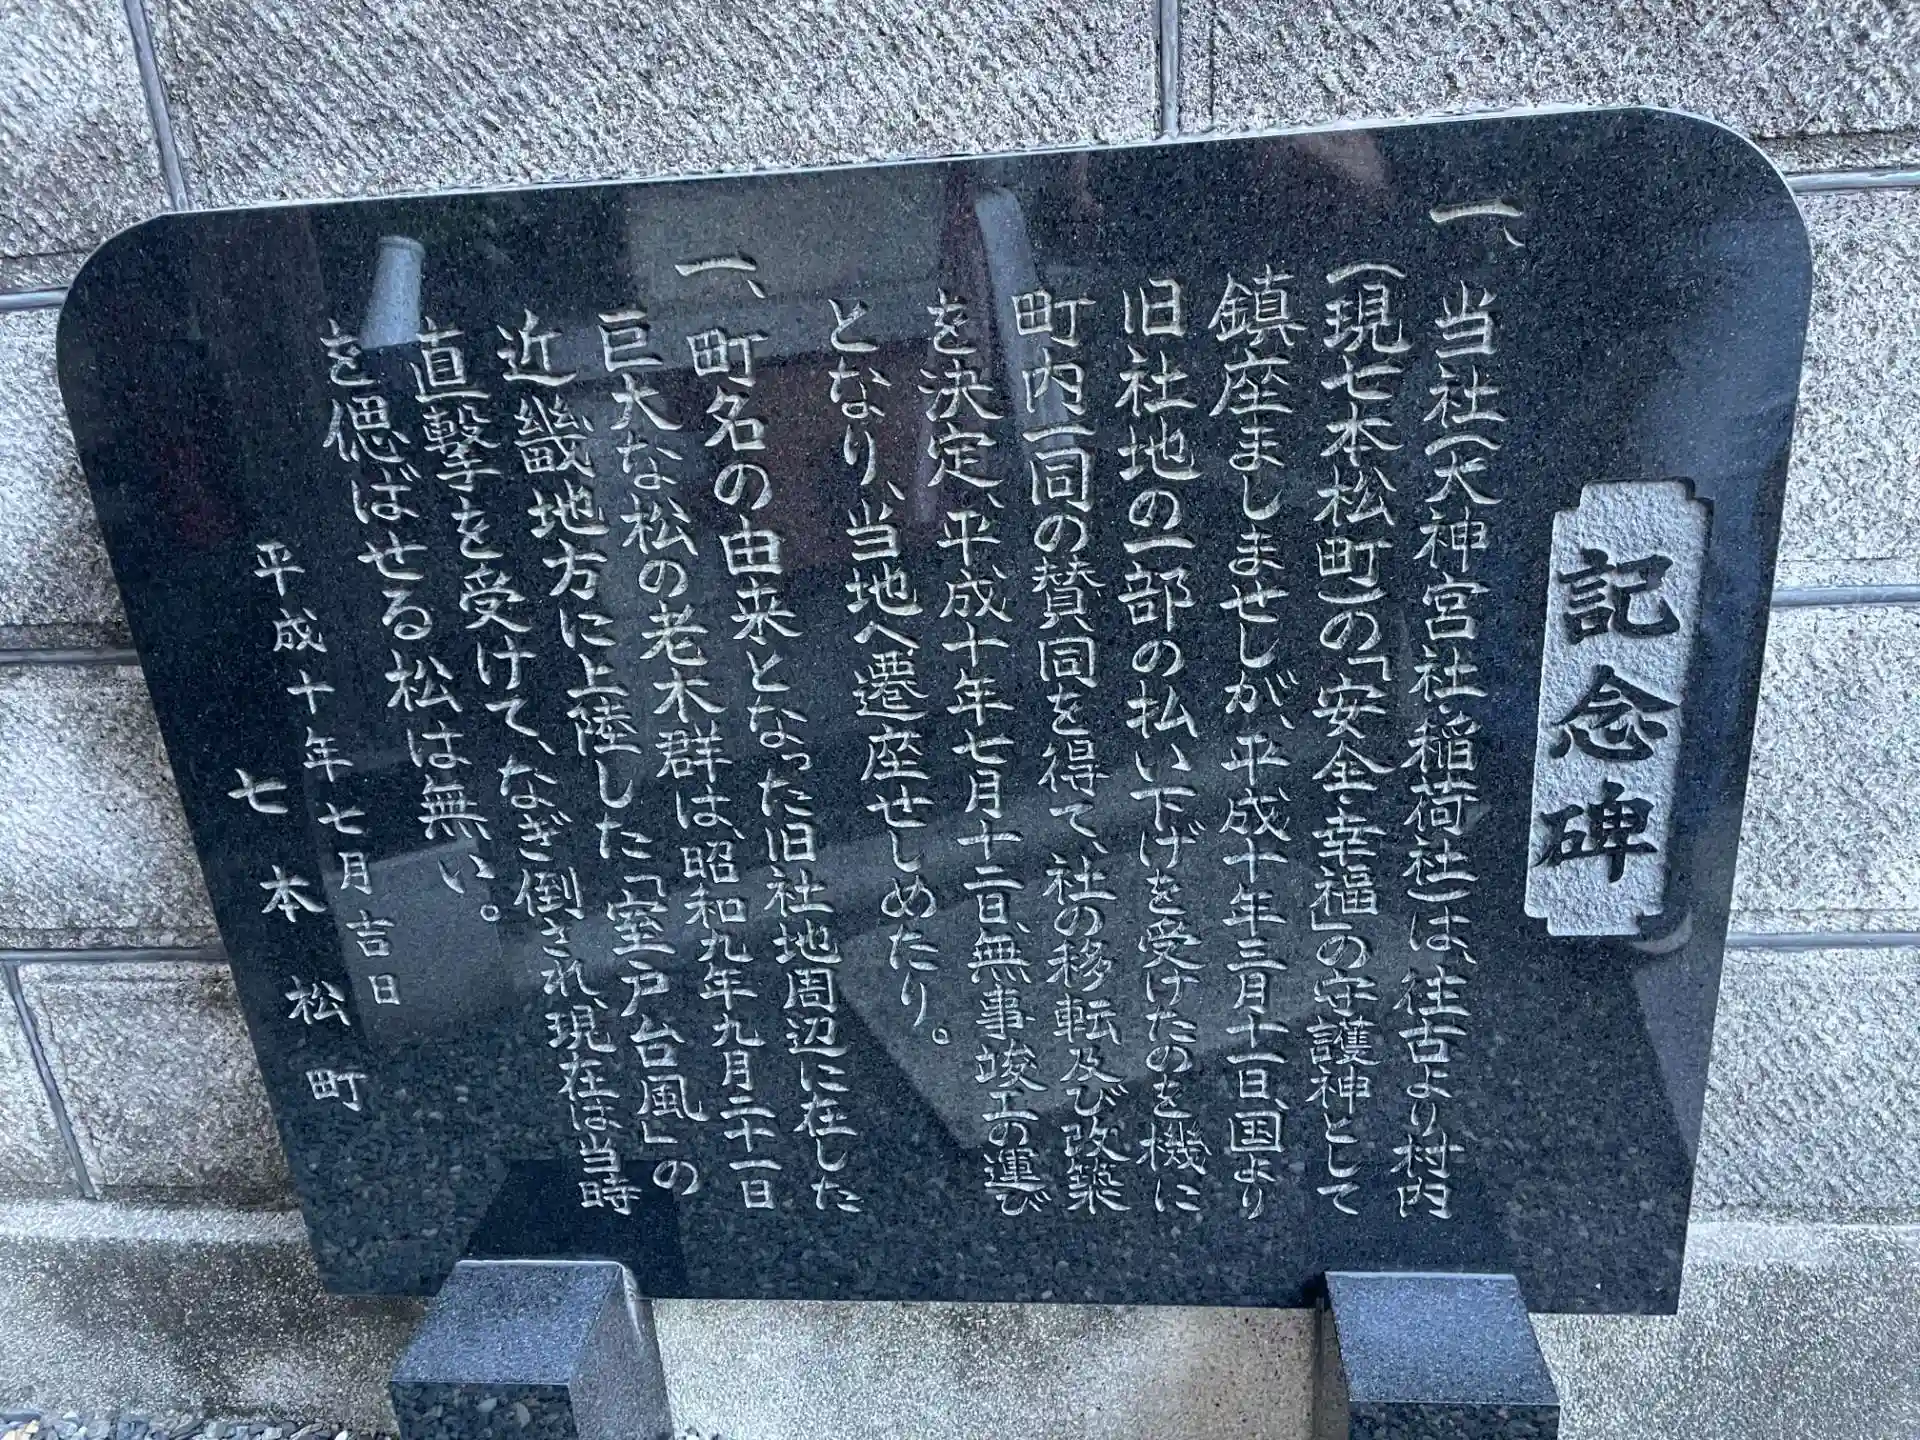 記念碑
一、当社(天神宮社・稲荷社)は、往古より村内
(現七本松町)の「安全・幸福」の守護神として
鎮座ましませしが、平成十年三月十一日、国より
旧社地の一部の払い下げを受けたのを機に
町内一同の賛同を得て、社の移転及び改築
を決定、平成十年七月十二日、無事竣工の運び
となり、当地へ遷座せしめたり。
一、町名の由来となった旧社地周辺に在した
巨大な松の老木群は、昭和九年九月二十一日
近畿地方に上陸した「室戸台風」の
直撃を受けて、なぎ倒され、現在は当時
を偲ばせる松は無い。
平成十年七月吉日
七本松町